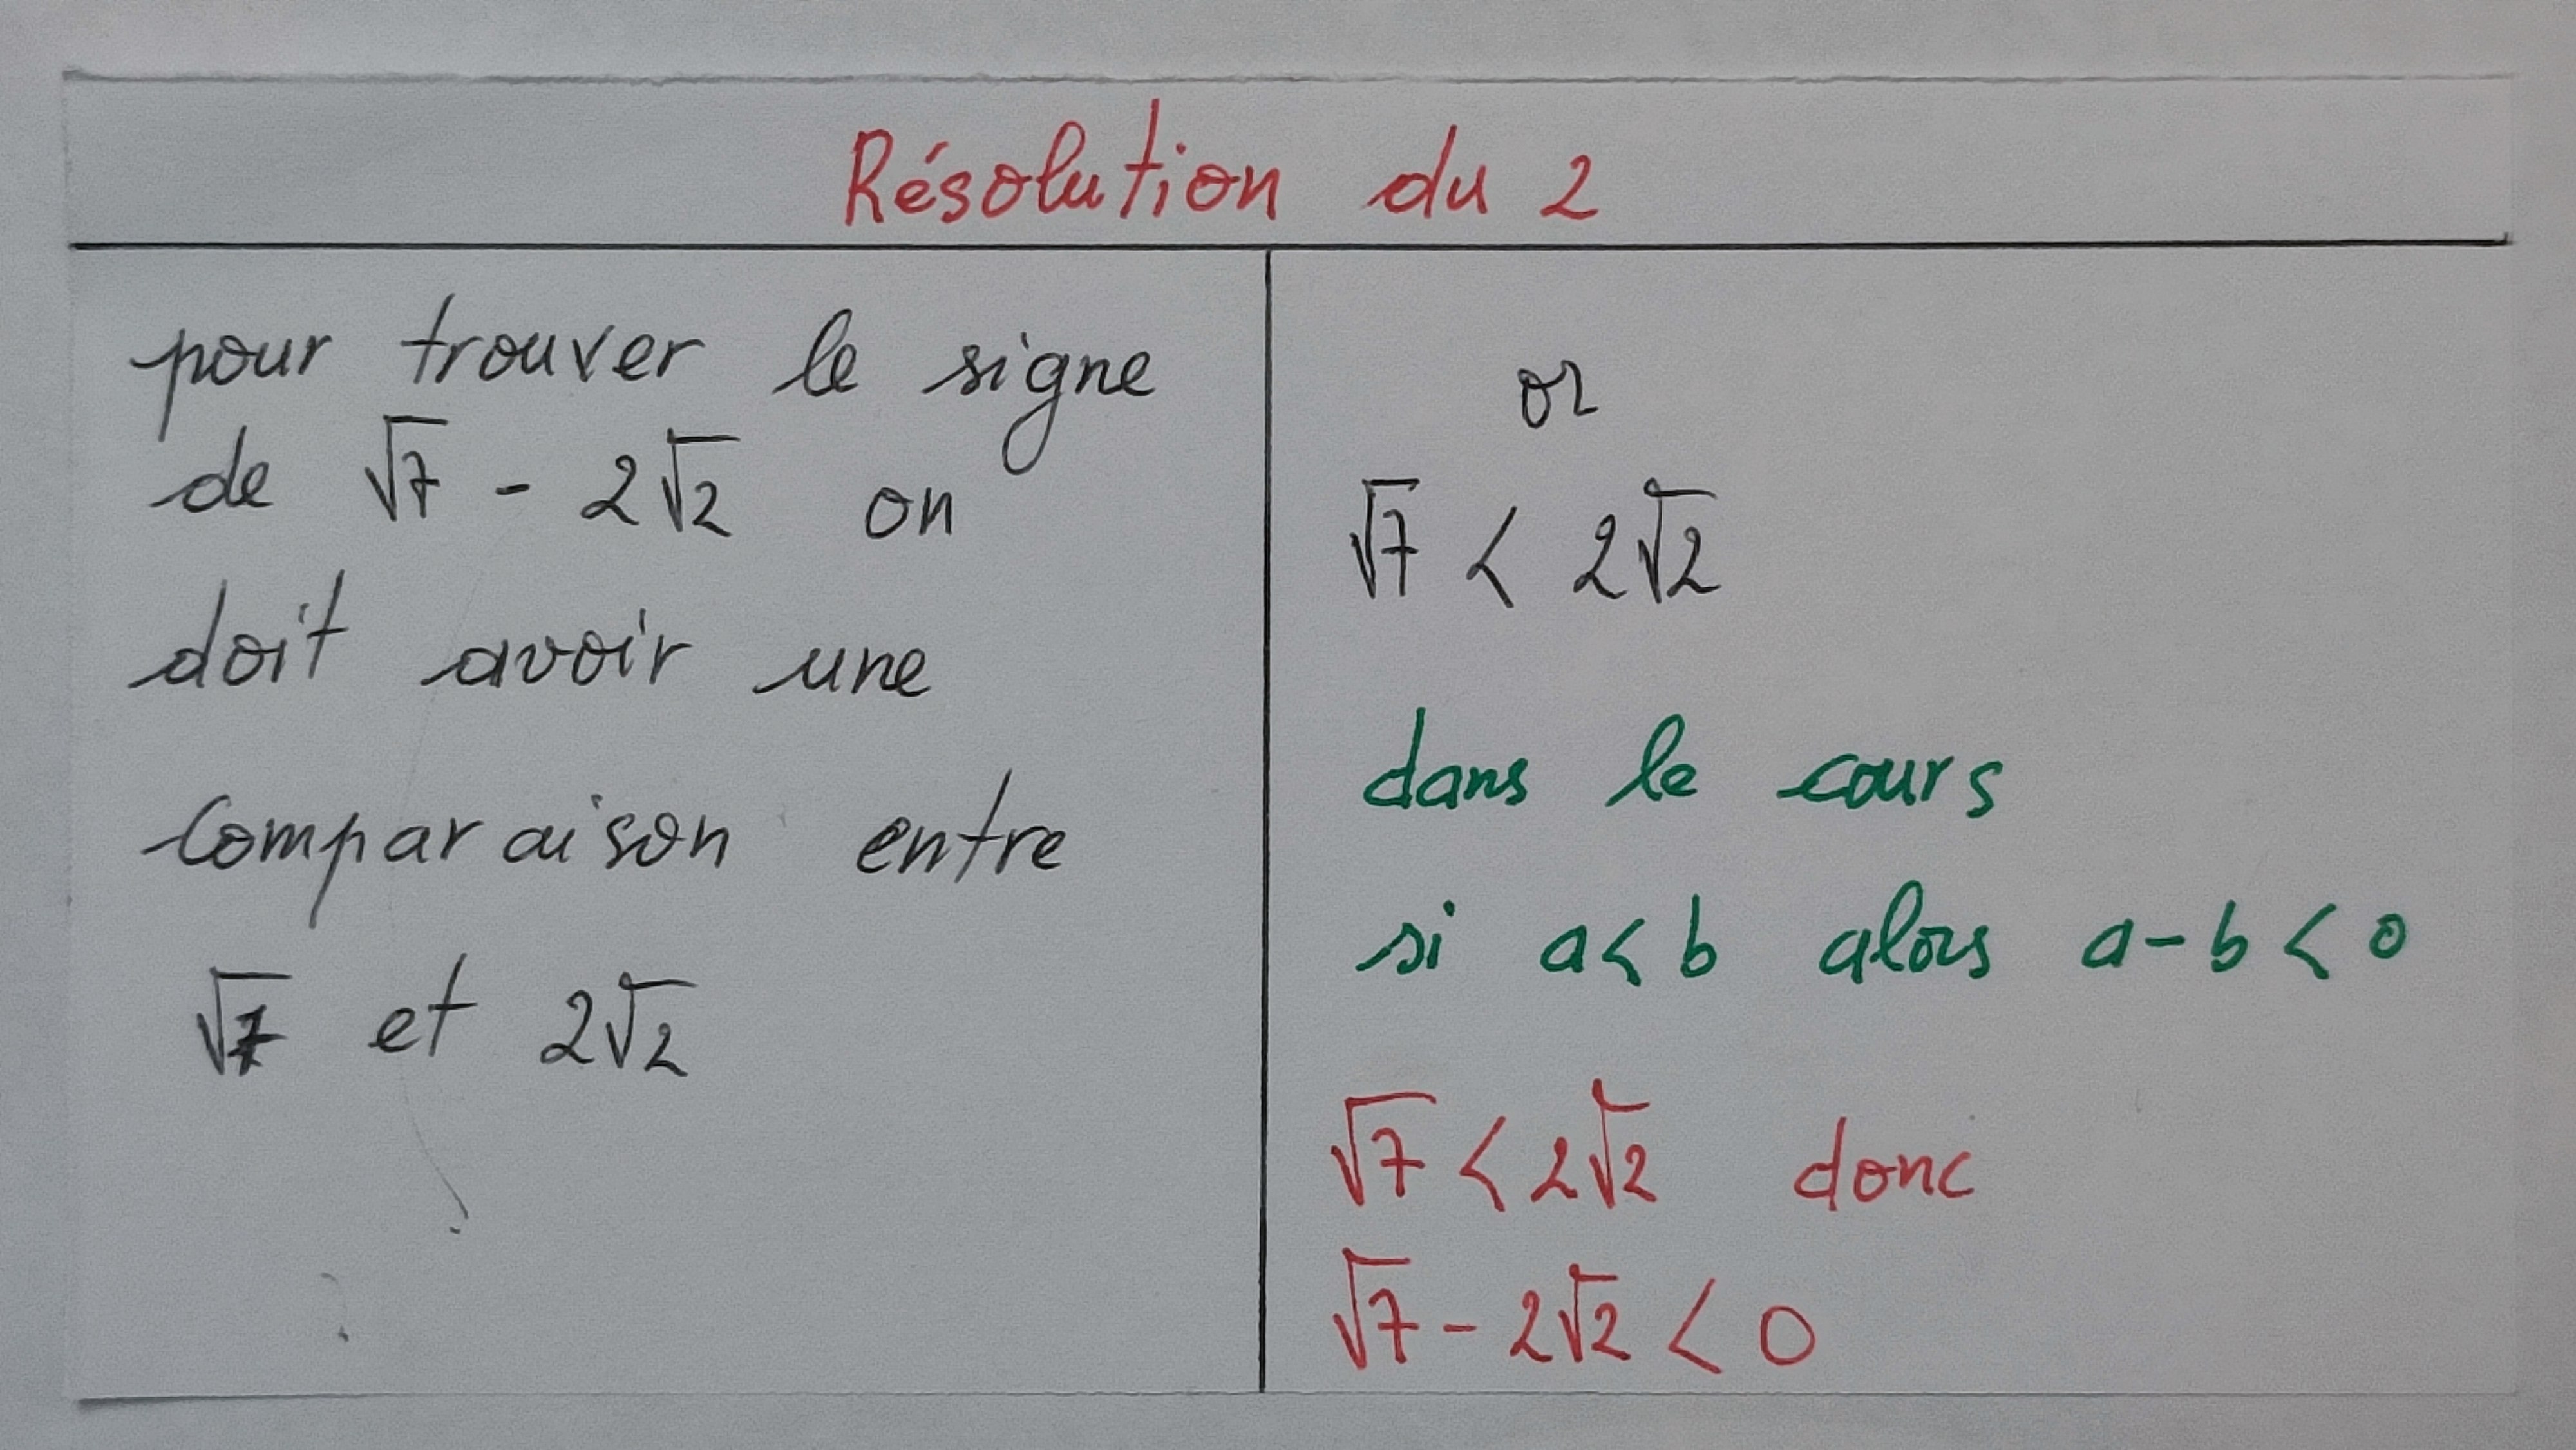 Résolution du 2
pour trouver le signe
de √7 - 2√2 on
doit avoir une
comparaison entre
√7 et 2√2
or
√7 < 2√2
dans le cours
si a < b alors a - b < 0
√7 < 2√2 donc
√7 - 2√2 < 0